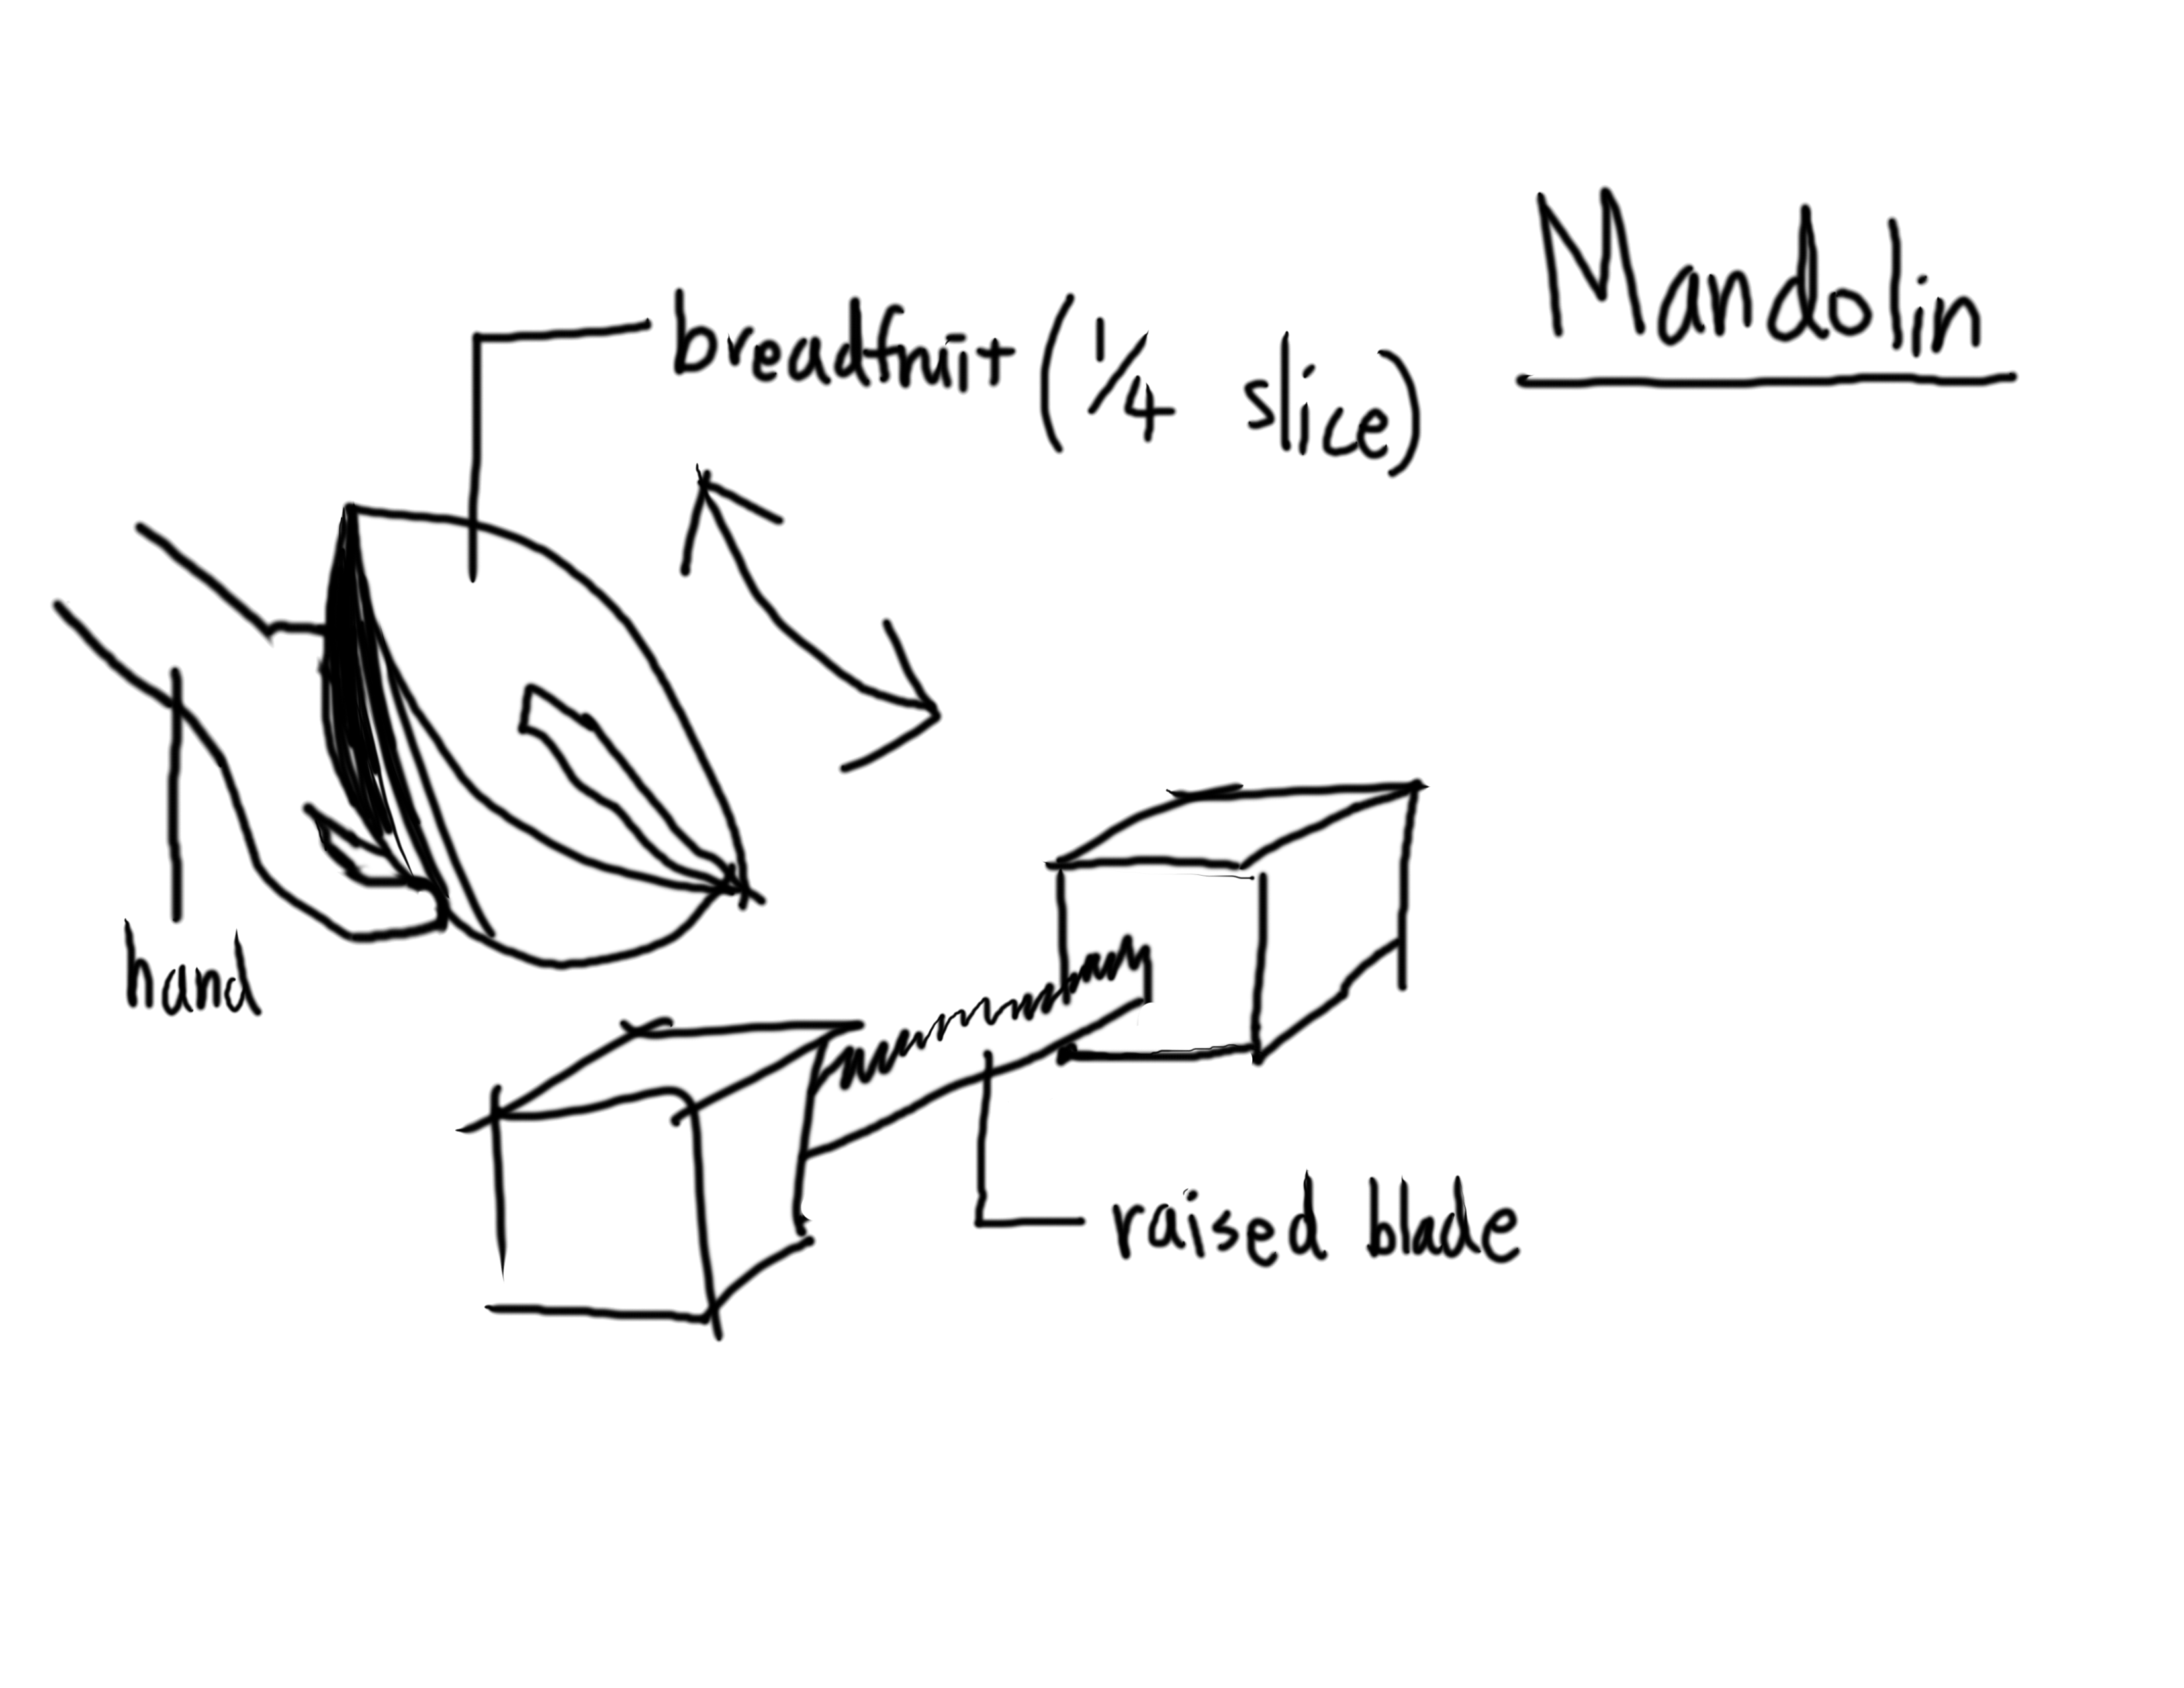 Mandolin
breadfruit (1/4 slice)
hand
raised blade